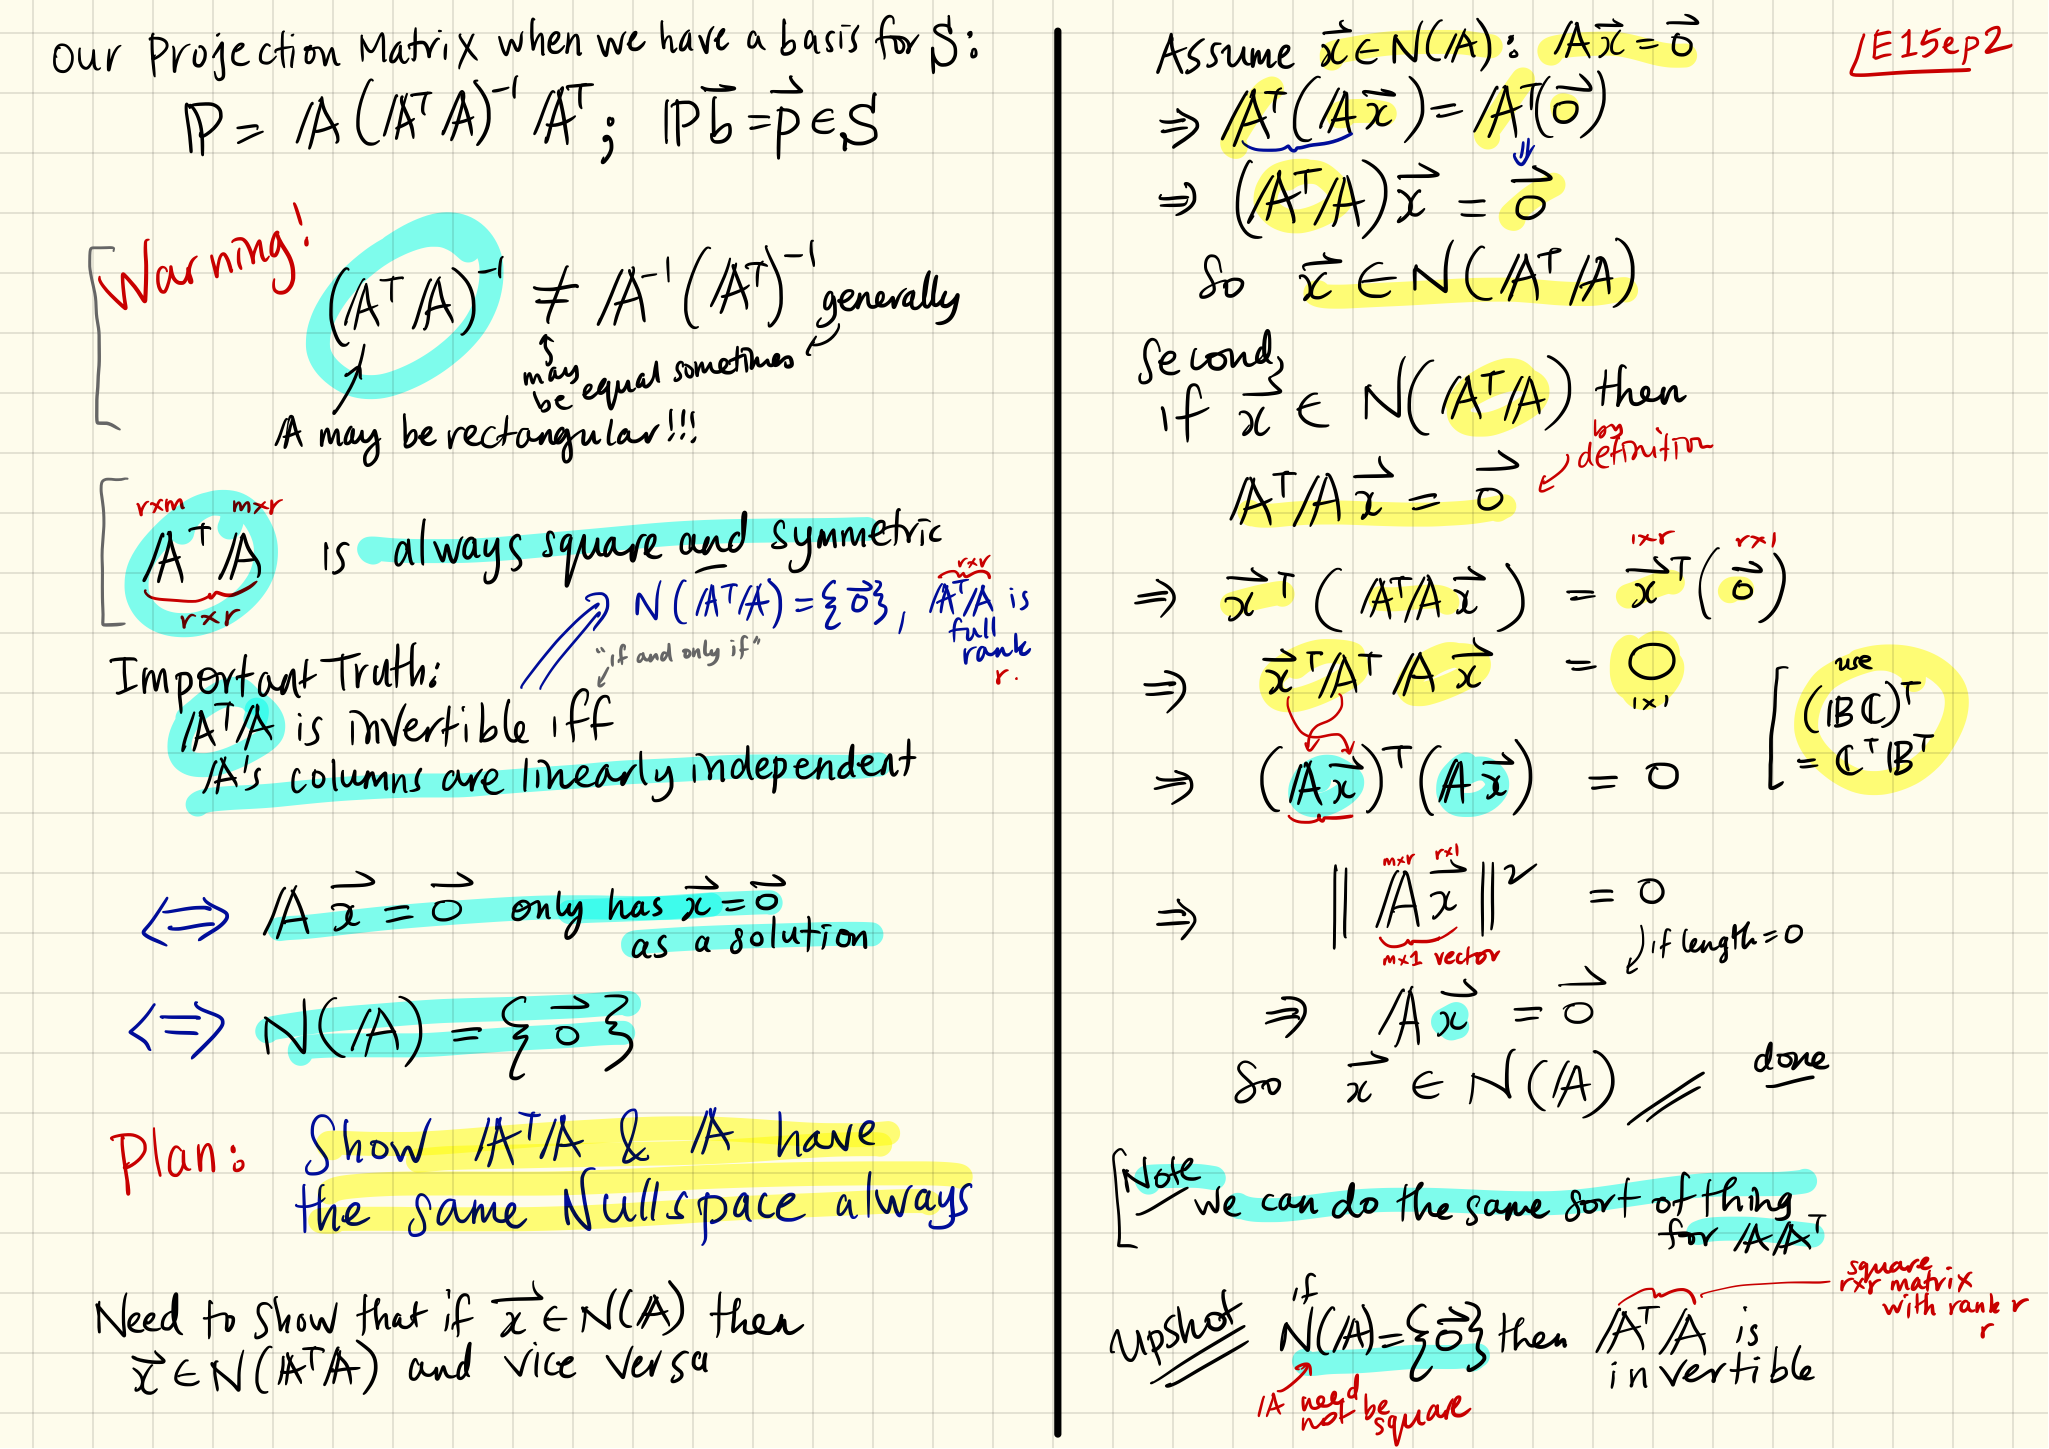 Our Projection Matrix when we have a basis for S:
ℙ = 𝔸(𝔸ᵀ𝔸)⁻¹𝔸ᵀ; ℙb⃗ = p⃗ ∈ S
Warning!
(𝔸ᵀ𝔸)⁻¹ ≠ 𝔸⁻¹(𝔸ᵀ)⁻¹ generally
may be equal sometimes
𝔸 may be rectangular!!!
r×m m×r
𝔸ᵀ𝔸 is always square and symmetric
r×r
N(𝔸ᵀ𝔸) = {0⃗}, 𝔸ᵀ𝔸 is full rank r.
r×r
"if and only if"
Important Truth:
𝔸ᵀ𝔸 is invertible iff
𝔸's columns are linearly independent
⇔ 𝔸x⃗ = 0⃗ only has x⃗ = 0⃗
as a solution
⇔ N(𝔸) = {0⃗}
Plan: Show 𝔸ᵀ𝔸 & 𝔸 have
the same Nullspace always
Need to show that if x⃗ ∈ N(𝔸) then
x⃗ ∈ N(𝔸ᵀ𝔸) and vice versa
LE15ep2
Assume x⃗ ∈ N(𝔸): 𝔸x⃗ = 0⃗
⇒ 𝔸ᵀ(𝔸x⃗) = 𝔸ᵀ(0⃗)
⇒ (𝔸ᵀ𝔸)x⃗ = 0⃗
So x⃗ ∈ N(𝔸ᵀ𝔸)
Second,
if x⃗ ∈ N(𝔸ᵀ𝔸) then
by definition
𝔸ᵀ𝔸x⃗ = 0⃗
1×r r×1
⇒ x⃗ᵀ(𝔸ᵀ𝔸x⃗) = x⃗ᵀ(0⃗)
⇒ x⃗ᵀ𝔸ᵀ𝔸x⃗ = 0
1×1
use
(𝔹ℂ)ᵀ
= ℂᵀ𝔹ᵀ
⇒ (𝔸x⃗)ᵀ(𝔸x⃗) = 0
m×r r×1
⇒ ||𝔸x⃗||² = 0
m×1 vector
if length=0
⇒ 𝔸x⃗ = 0⃗
So x⃗ ∈ N(𝔸) // done
Note
we can do the same sort of thing
for 𝔸𝔸ᵀ
square
r×r matrix
with rank r
r
upshot if N(𝔸)={0⃗} then 𝔸ᵀ𝔸 is
invertible
𝔸 need
not be
square